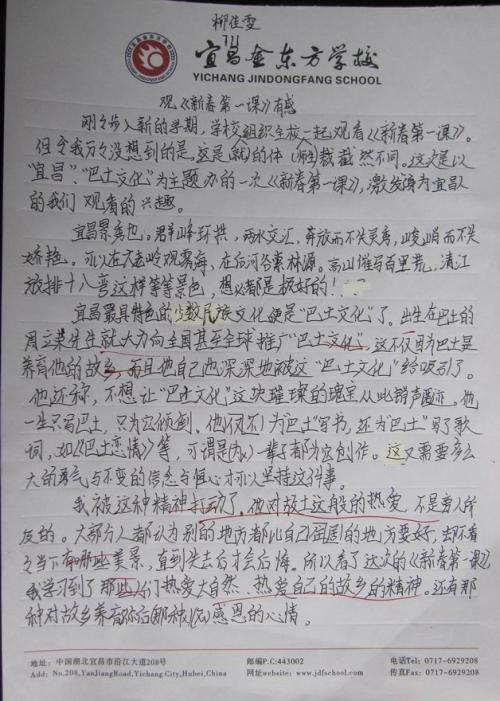 柳佳雯
711
宜昌金东方学校
YICHANG JINDONGFANG SCHOOL
观《新春第一课》有感
刚刚步入新的学期，学校组织全校一起观看《新春第一课》。
但令我万万没想到的是，这是的体裁截然不同。这次是以
"宜昌"、"巴土文化"为主题办的一次《新春第一课》，激发身为宜昌人
的我们观看的兴趣。
宜昌景秀也。群峰环拱，两水交汇，奔放而不失灵秀，峻峭而不失
娇艳。可以在岭观雾海，在后河谷来林源。高山催马百里荒，清江
放排十八弯这样等等景色，想必都是极好的！
宜昌最具特色的少数民族文化便是"巴土文化"了。出生在巴土的
周立荣先生就大力向全国甚至全球推广"巴土文化"，这不仅因为巴土是
养育他的故乡，而且他自己也深深地被这"巴土文化"给吸引了。
他还称，不想让"巴土文化"这块璀璨的瑰宝从此销声匿迹。他
一生只写巴土，只为它倾倒。他不为"巴土"写书，还为"巴土"写了歌
词，如《巴土恋情》等，可谓是一辈子都为它创作。这又需要多么
大的勇气与不变的信念与恒心才可以坚持这件事。
我被这种精神打动了，他对故土这般的热爱，不是旁人所
及的。大部分人都认为别的地方都比自己周围的地方要好，却不看
当下有那些美景，直到失去后才会后悔。所以看了这次的《新春第一课》，
我学习到了那些人们热爱大自然、热爱自己的故乡的精神。还有那
种对故乡养育你后那种感恩的心情。
地址：中国湖北宜昌市沿江大道208号
邮编P.C:443002
电话Tel: 0717-6929208
Add: No.208,YanJiangRoad,Yichang City,Hubei,China
网址website: www.jdfschool.com
传真Fax: 0717-6929208